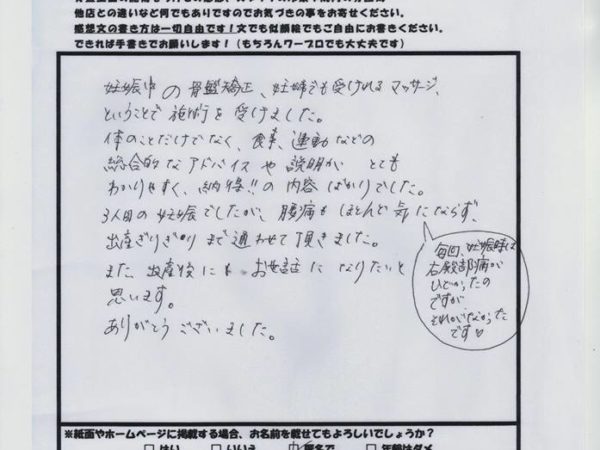 他店との違いなど何でもありですのでお気づきの事をお寄せください。
感想文の書き方は一切自由です！文でも似顔絵でもご自由にお書きください。
できれば手書きでお願いします！（もちろんワープロでも大丈夫です）
妊娠中の骨盤矯正、妊婦でも受けれるマッサージ、
ということで施術を受けました。
体のことだけでなく、食事、運動などの
総合的なアドバイスや説明が とても
わかりやすく、納得!!の内容ばかりでした。
3人目の妊娠でしたが、腰痛もほとんど気にならず、
出産ぎりぎりまで通わせて頂きました。
また出産後にも お世話になりたいと
思います。
ありがとうございました。
毎回、妊娠時は
右殿部痛が
ひどかったの
ですが
それがなかった
です♡
※紙面やホームページに掲載する場合、お名前を載せてもよろしいでしょうか？
□ はい □ いいえ 匿名で □ 年齢はダメ